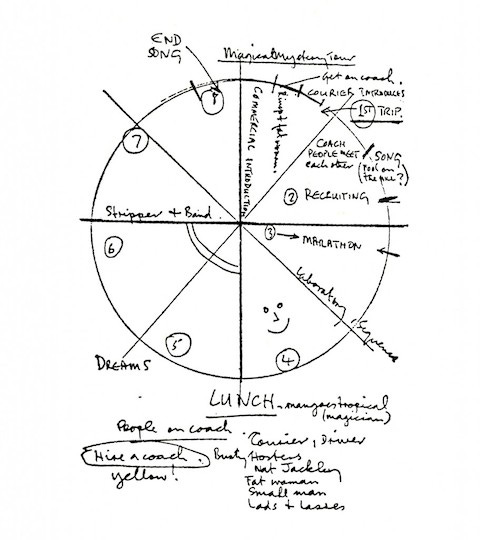 END
SONG
Magical Mystery Tour
Get on coach.
COURIER INTRODUCES
1ST TRIP.
COMMERCIAL INTRODUCTION
fat woman.
8
7
COACH
PEOPLE MEET
each other
SONG
(Fool on
the hill?)
2 RECRUITING
Stripper & Band.
3 → MARATHON
6
Laboratory Sequence
5
4
DREAMS
LUNCH - mangoes tropical
(magician)
People on coach.
Courier, Driver
Hire a coach.
Busty Hostess
yellow!
Nat Jackley
Fat woman
Small man
Lads & Lasses